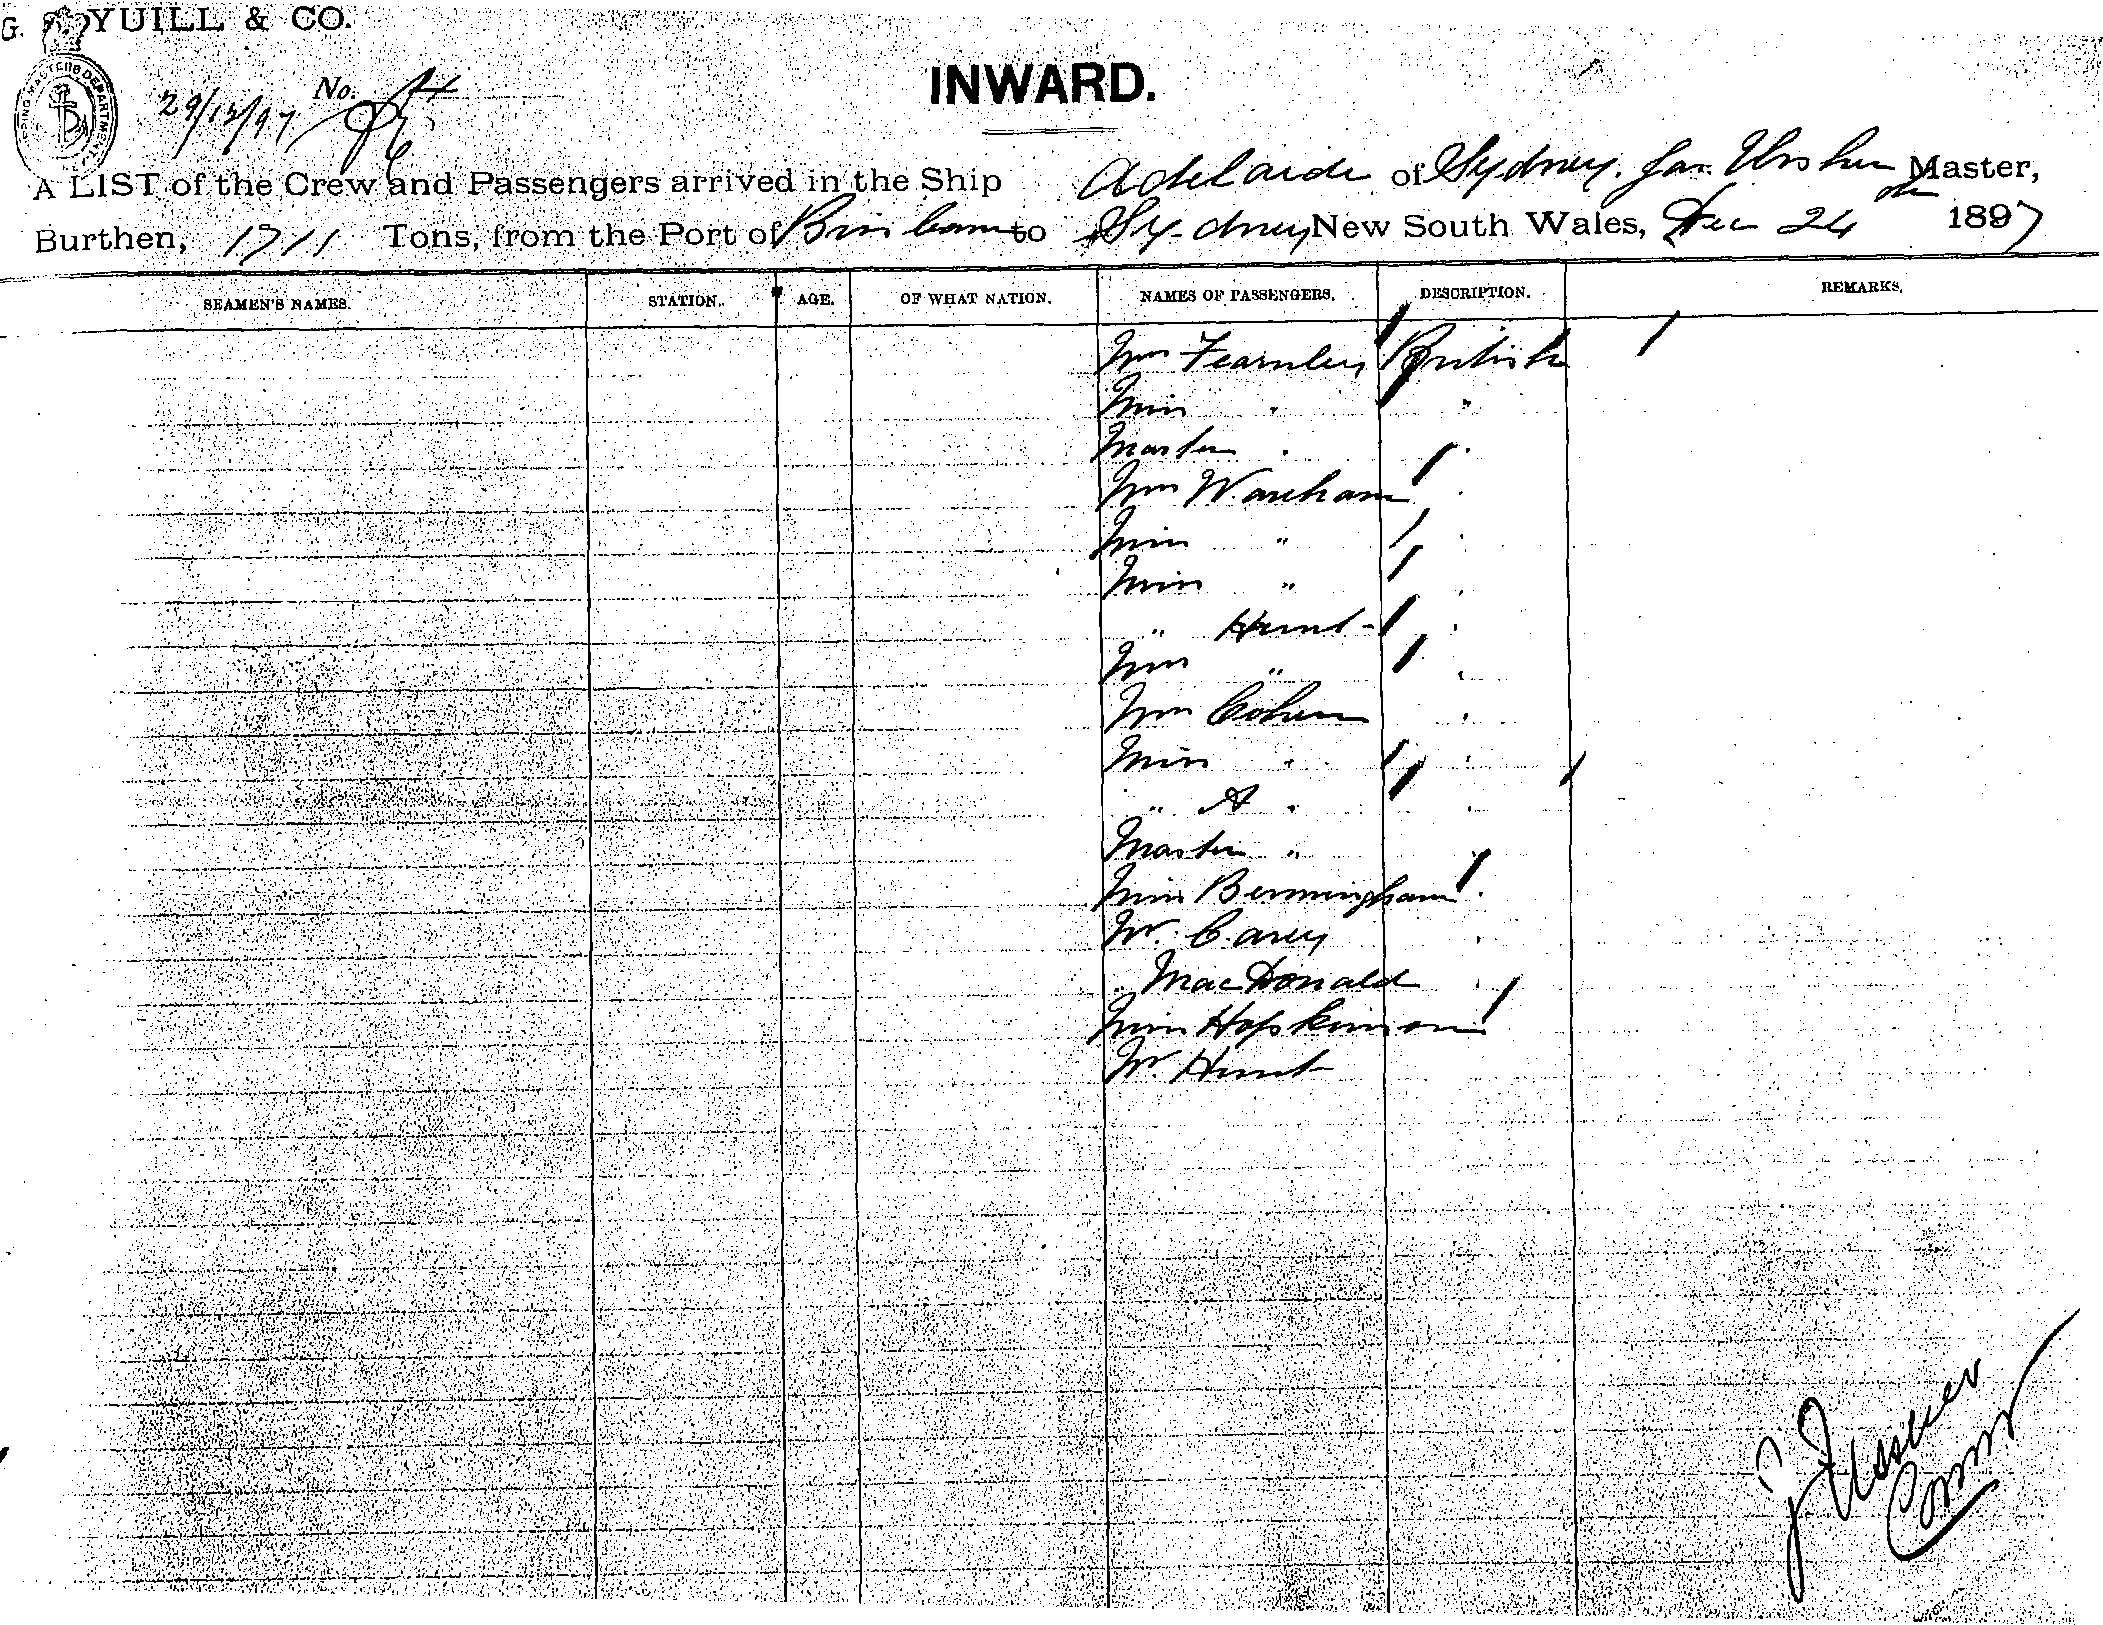 G. S. YUILL & CO.
INWARD.
29/12/97 No.
SHIPPING MASTERS DEPARTMENT
A LIST of the Crew and Passengers arrived in the Ship Adelaide of Sydney. Jas. Ussher Master,
Burthen, 1711 Tons, from the Port of Brisbane to Sydney New South Wales, Dec 24th 1897
SEAMEN'S NAMES. STATION. AGE. OF WHAT NATION. NAMES OF PASSENGERS. DESCRIPTION. REMARKS.
Mrs Fearnley British
Miss " "
Master " "
Mrs Wareham "
Miss " "
Miss " "
" Hunt "
Mrs " "
Mrs Cohen "
Miss " "
" A " "
Master " "
Miss Bermingham "
Mr. Carey "
" MacDonald "
Miss Hopkinson
Mr. Hunt
J Ussher